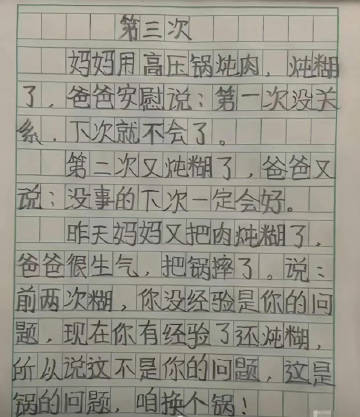 第三次
妈妈用高压锅炖肉，炖糊
了，爸爸安慰说：第一次没关
系，下次就不会了。
第二次又炖糊了，爸爸又
说：没事的下次一定会好。
昨天妈妈又把肉炖糊了，
爸爸很生气，把锅摔了。说：
前两次糊，你没经验是你的问
题，现在你有经验了还炖糊，
所以说这不是你的问题，这是
锅的问题，咱换个锅！